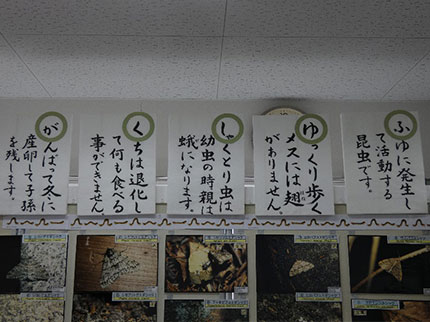 ふゆに発生し
て活動する
昆虫です。
ゆっくり歩く
メスには翅
がありません
しゃくとり虫は
幼虫の時親は
蛾になります。
くちは退化し
て何も食べる
事ができません
がんばって冬に
産卵して子孫
を残します。